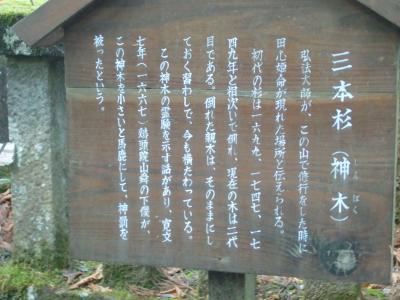 三本杉(神木)
しんぼく
弘法大師が、この山で修行をした時に
田心姫命が現れた場所と伝えられる。
初代の杉は一六九九、一七四七、一七
四九年と相次いで倒れ、現在の木は二代
目である。倒れた親木は、そのままにし
ておく習わしで、今も横たわっている。
この神木の霊験を示す話があり、寛文
七年(一六六七)鶏頭院山舜の下僕が、
この神木を小さいと馬鹿にして、神罰を
被ったという。